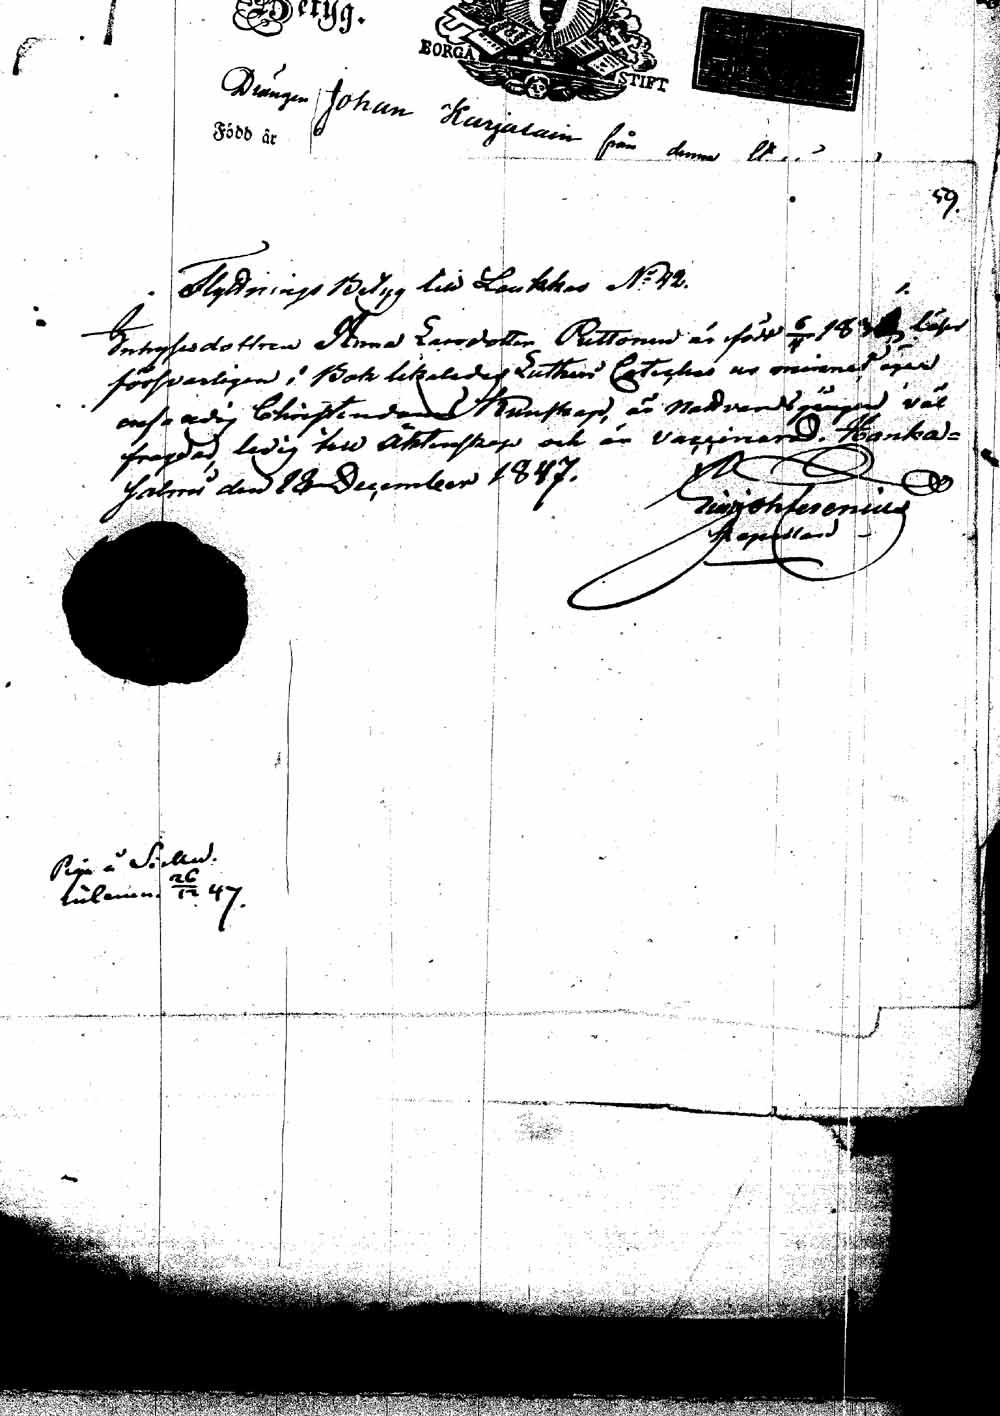 Betyg.
BORGÅ STIFT.
Drängen Johan Karjalain från denna
Född år
59.
Flyttnings Betyg till Laukkas No 42.
Inhysesdottren Anna Larsdotter Puttonen är född 6/4 18 läser
försvarligen i Bok likaledes Lutheri Cateches ur minnet, äger
Christendoms Kunskap, är Nattvardsgången, väl
frejdad, ledig till Äktenskap och är vaccinerad. Hanka=
salmi den 18 December 1847.
Kapellan
26/12 47.